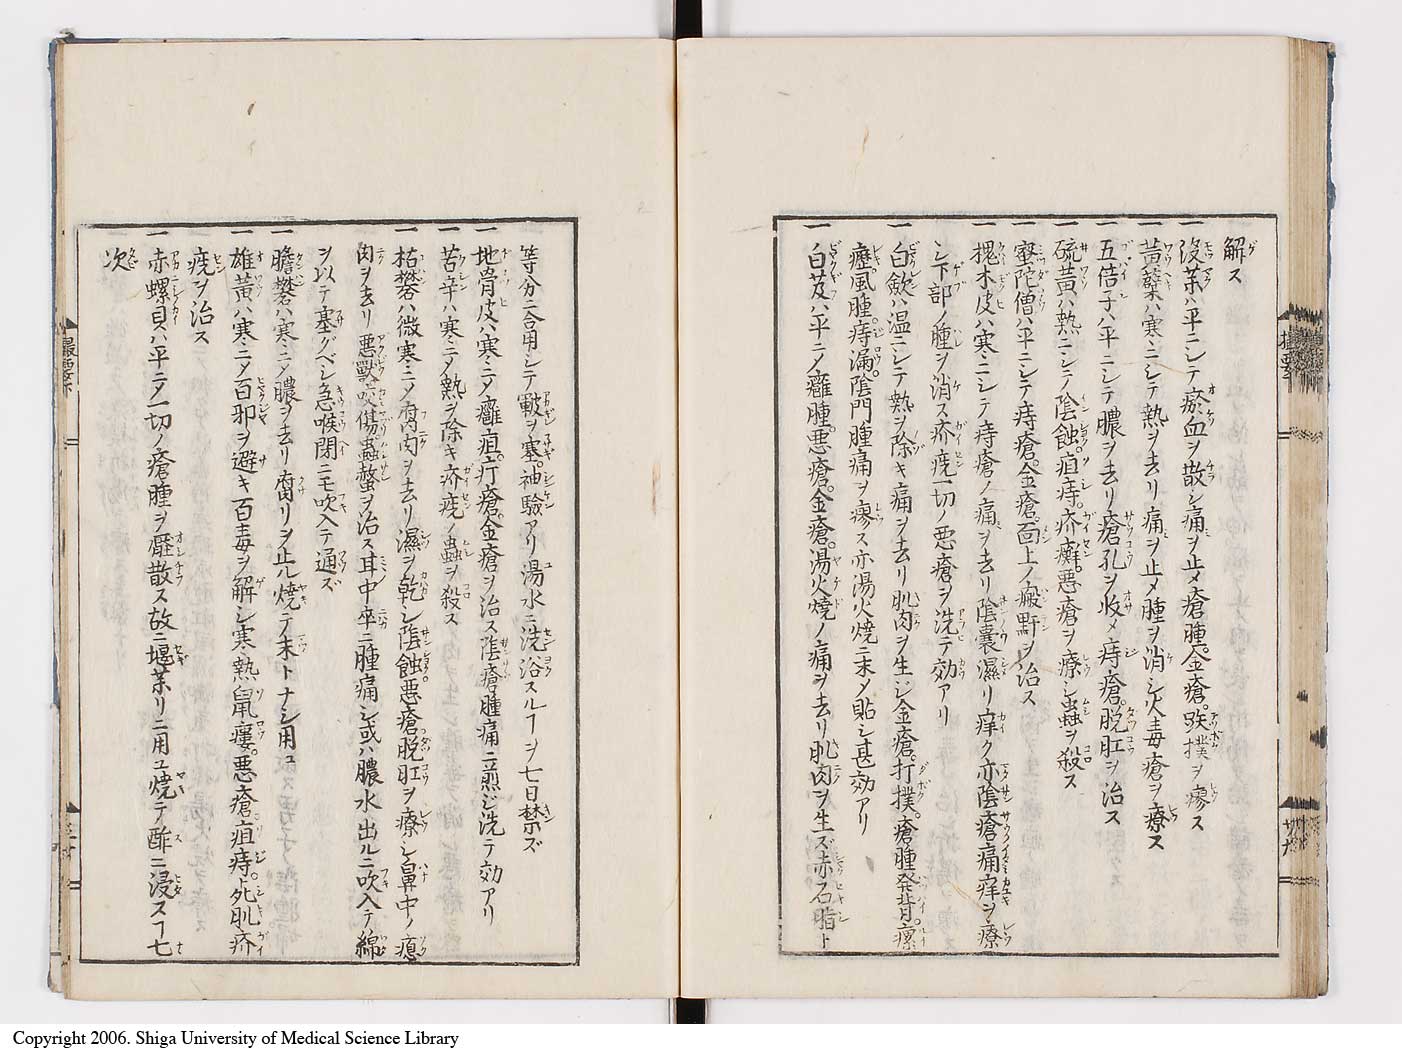 解ス
一 没薬ハ平ニシテ瘀血ヲ散シ痛ヲ止メ瘡腫。金瘡。跌撲ヲ療ス
一 黄蘗ハ寒ニシテ熱ヲ去リ痛ヲ止メ腫ヲ消シ火毒瘡ヲ療ス
一 五倍子ハ平ニシテ膿ヲ去リ瘡孔ヲ收メ痔瘡。脱肛ヲ治ス
一 硫黄ハ熱ニシテ陰蝕。疽痔。疥癬。悪瘡ヲ療シ蟲ヲ殺ス
一 蜜陀僧ハ平ニシテ痔瘡。金瘡。面上ノ瘢䵟ヲ治ス
一 槐木皮ハ寒ニシテ痔瘡ノ痛ヲ去リ陰囊濕リ痒ク亦陰瘡痛痒ヲ療
シ下部ノ腫ヲ消ス疥㾌一切ノ悪瘡ヲ洗テ効アリ
一 白斂ハ温ニシテ熱ヲ除キ痛ヲ去リ肌肉ヲ生ジ金瘡。打撲。瘡腫発背。瘰
癧風腫。痔漏。陰門腫痛ヲ療ス亦湯火焼ニ末メ貼シ甚効アリ
一 白芨ハ平ニメ癰腫。悪瘡。金瘡。湯火焼ノ痛ヲ去リ肌肉ヲ生ズ赤石脂ト
等分ニ合用シテ皸ヲ塞。神驗アリ湯水ニ洗浴スルヿヲ七日禁ズ
一 地骨皮ハ寒ニメ癰疽。疔瘡。金瘡ヲ治ス陰瘡腫痛ニ煎ジ洗テ効アリ
一 苦辛ハ寒ニメ熱ヲ除キ疥㾌ノ蟲ヲ殺ス
一 枯礬ハ微寒ニメ腐肉ヲ去リ濕ヲ乾シ陰蝕。悪瘡脱肛ヲ療シ鼻中ノ瘜
肉ヲ去リ悪獸咬傷蟲螫ヲ治ス耳中卒ニ腫痛シ或ハ膿水出ルニ吹入テ綿
ヲ以テ塞グベシ急喉閉ニモ吹入テ通ズ
一 膽礬ハ寒ニメ膿ヲ去リ腐リヲ止ル焼テ末トナシ用ユ
一 雄黄ハ寒ニメ百邪ヲ避キ百毒ヲ解シ寒熱鼠瘻。悪瘡疽痔。死肌疥
㾌ヲ治ス
一 赤螺貝ハ平ニメ一切ノ瘡腫ヲ壓散ス故ニ堰薬リニ用ユ焼テ酢ニ浸スヿ七
次